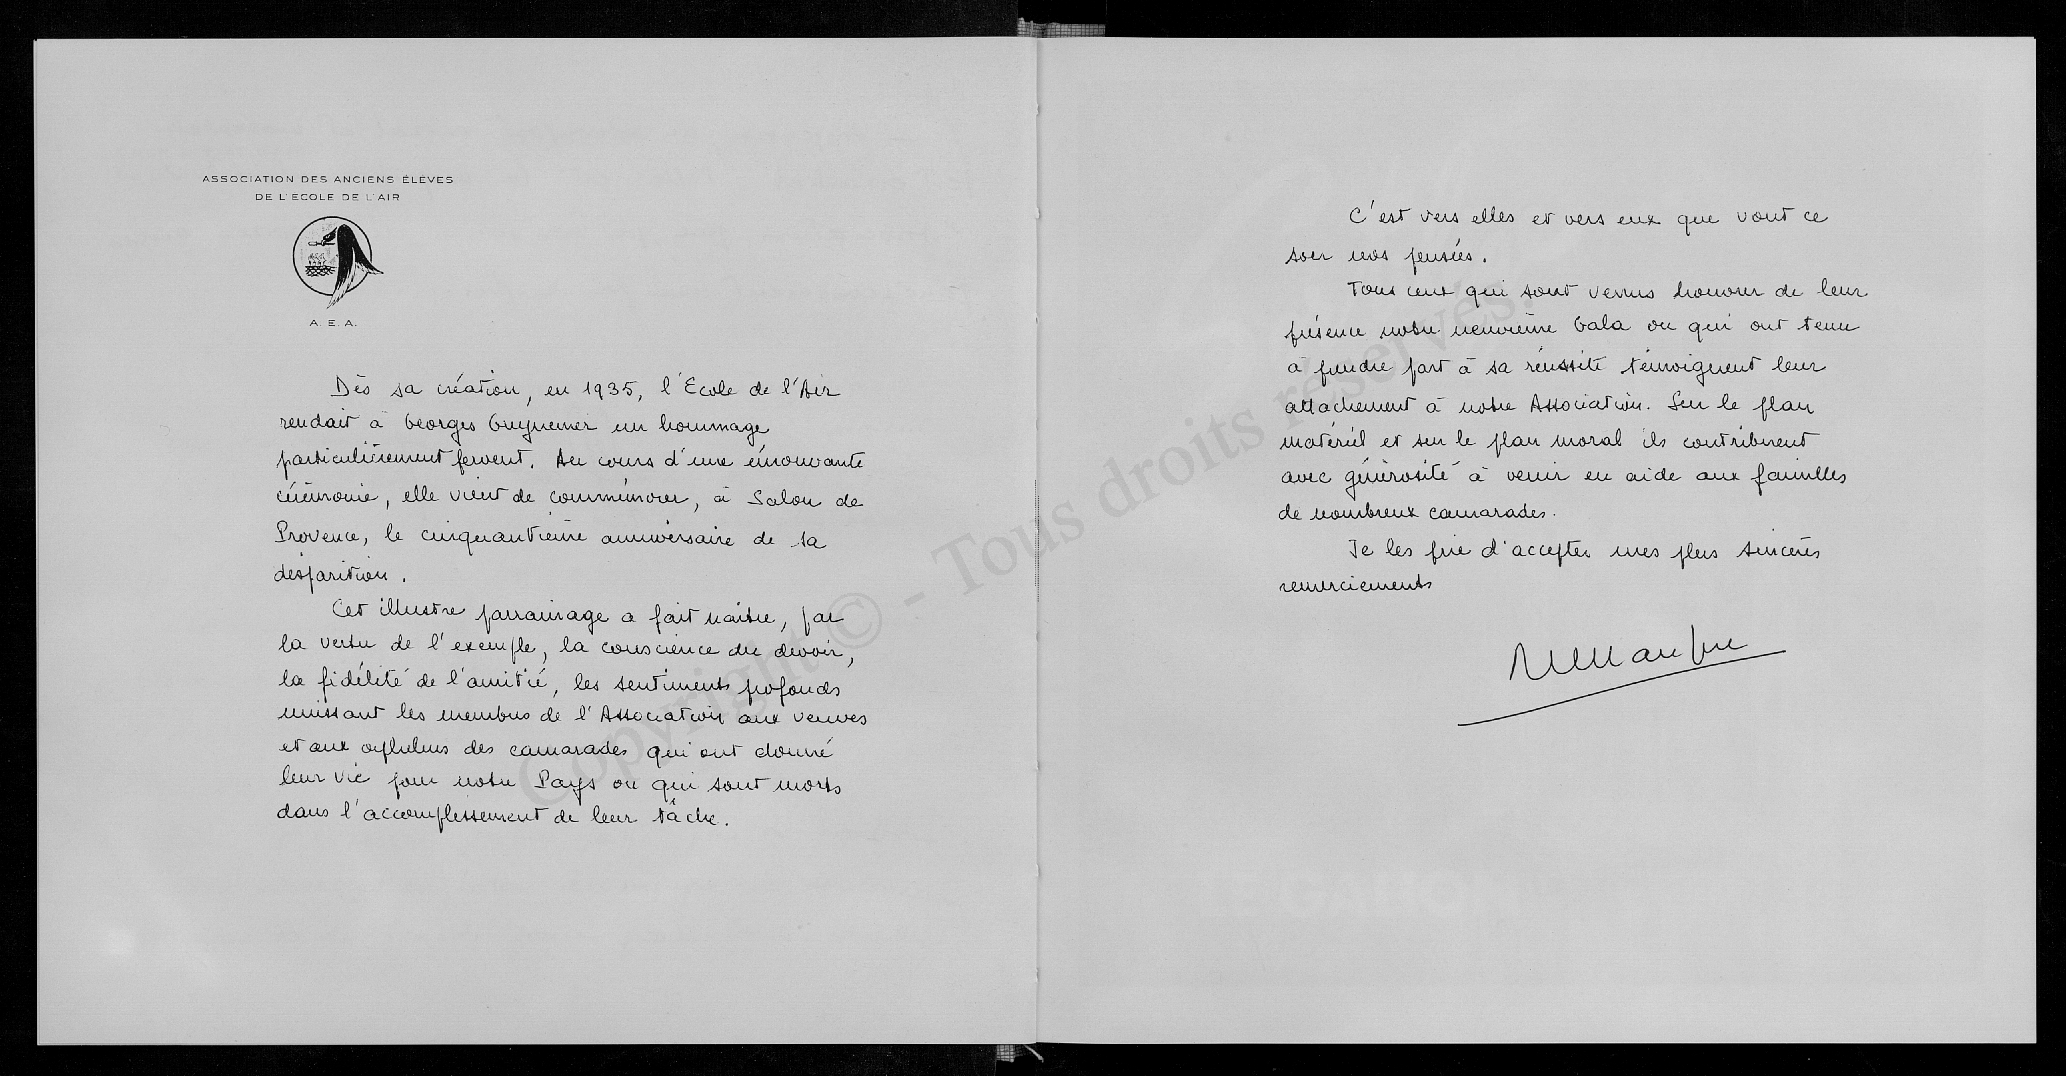 ASSOCIATION DES ANCIENS ÉLÈVES
DE L'ECOLE DE L'AIR
A. E. A.
Dès sa création, en 1935, l'Ecole de l'Air
rendait à Georges Guynemer un hommage
particulièrement fervent. Au cours d'une émouvante
cérémonie, elle vient de commémorer, à Salon de
Provence, le cinquantième anniversaire de sa
disparition.
Cet illustre parrainage a fait naître, par
la vertu de l'exemple, la conscience du devoir,
la fidélité de l'amitié, les sentiments profonds
unissant les membres de l'Association aux veuves
et aux orphelins des camarades qui ont donné
leur vie pour notre Pays ou qui sont morts
dans l'accomplissement de leur tâche.
C'est vers elles et vers eux que vont ce
soir nos pensées.
Tous ceux qui sont venus honorer de leur
présence notre neuvième Gala ou qui ont tenu
à prendre part à sa réussite témoignent leur
attachement à notre Association. Sur le plan
matériel et sur le plan moral ils contribuent
avec générosité à venir en aide aux familles
de nombreux camarades.
Je les prie d'accepter mes plus sincères
remerciements
Copyright © - Tous droits réservés.